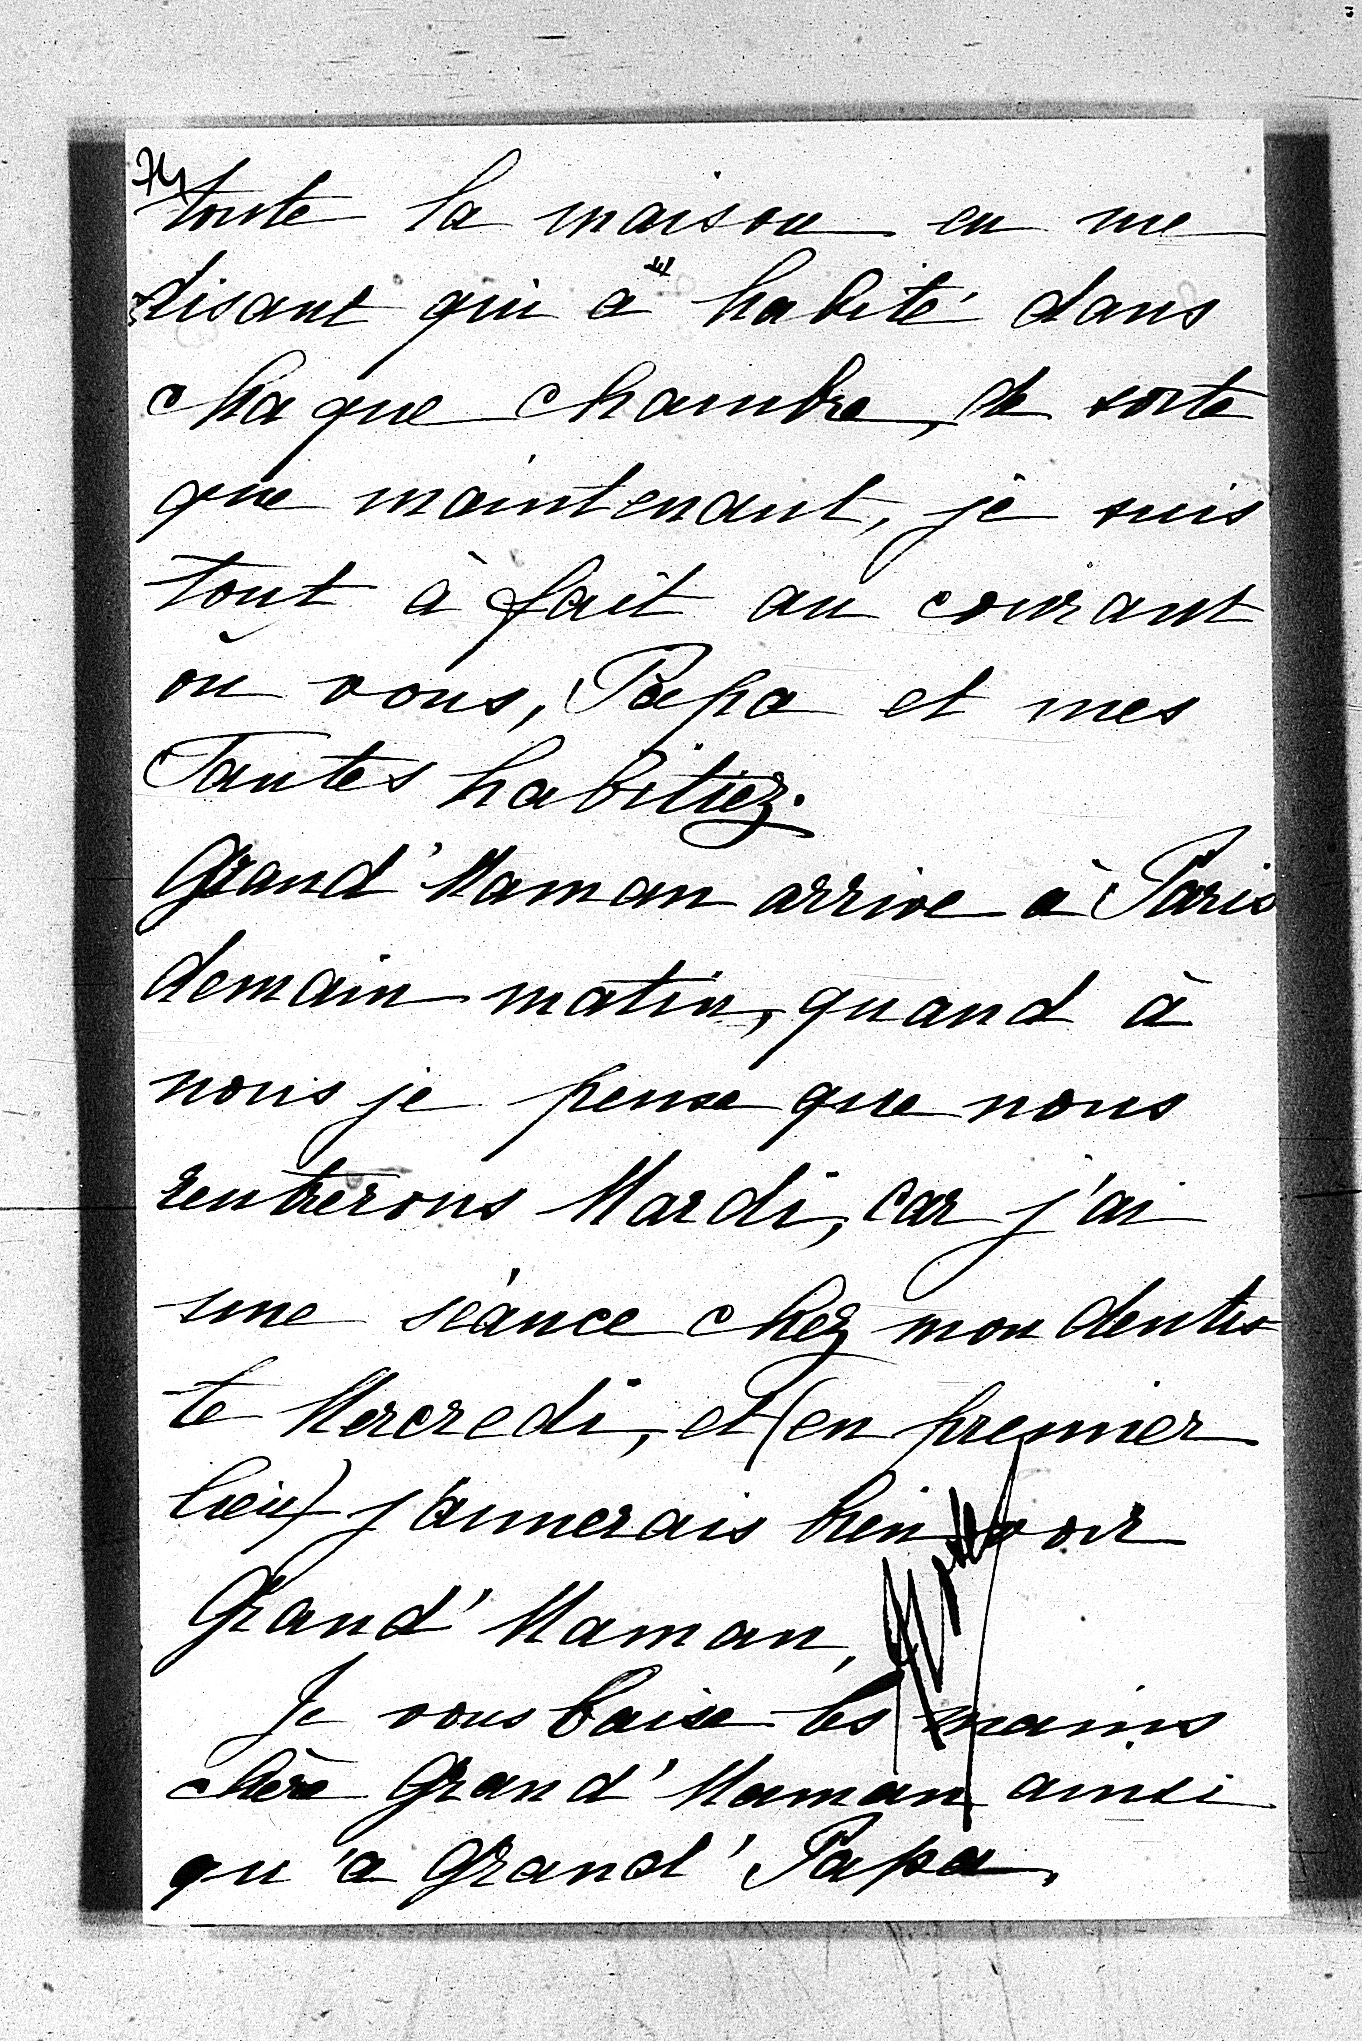 toute la maison en me
disant qui a habité dans
chaque chambre, de sorte
que maintenant, je suis
tout à fait au courant
où vous, Papa et mes
Tantes habitiez.
Grand' Maman arrive à Paris
demain matin, quand à
nous je pense que nous
rentrerons Mardi, car j'ai
une séance chez mon dentis
te Mercredi, et (en premier
lieu) j'aimerais bien voir
Grand' Maman,
Je vous baise les mains
chère Grand' Maman ainsi
qu'a Grand' Papa.